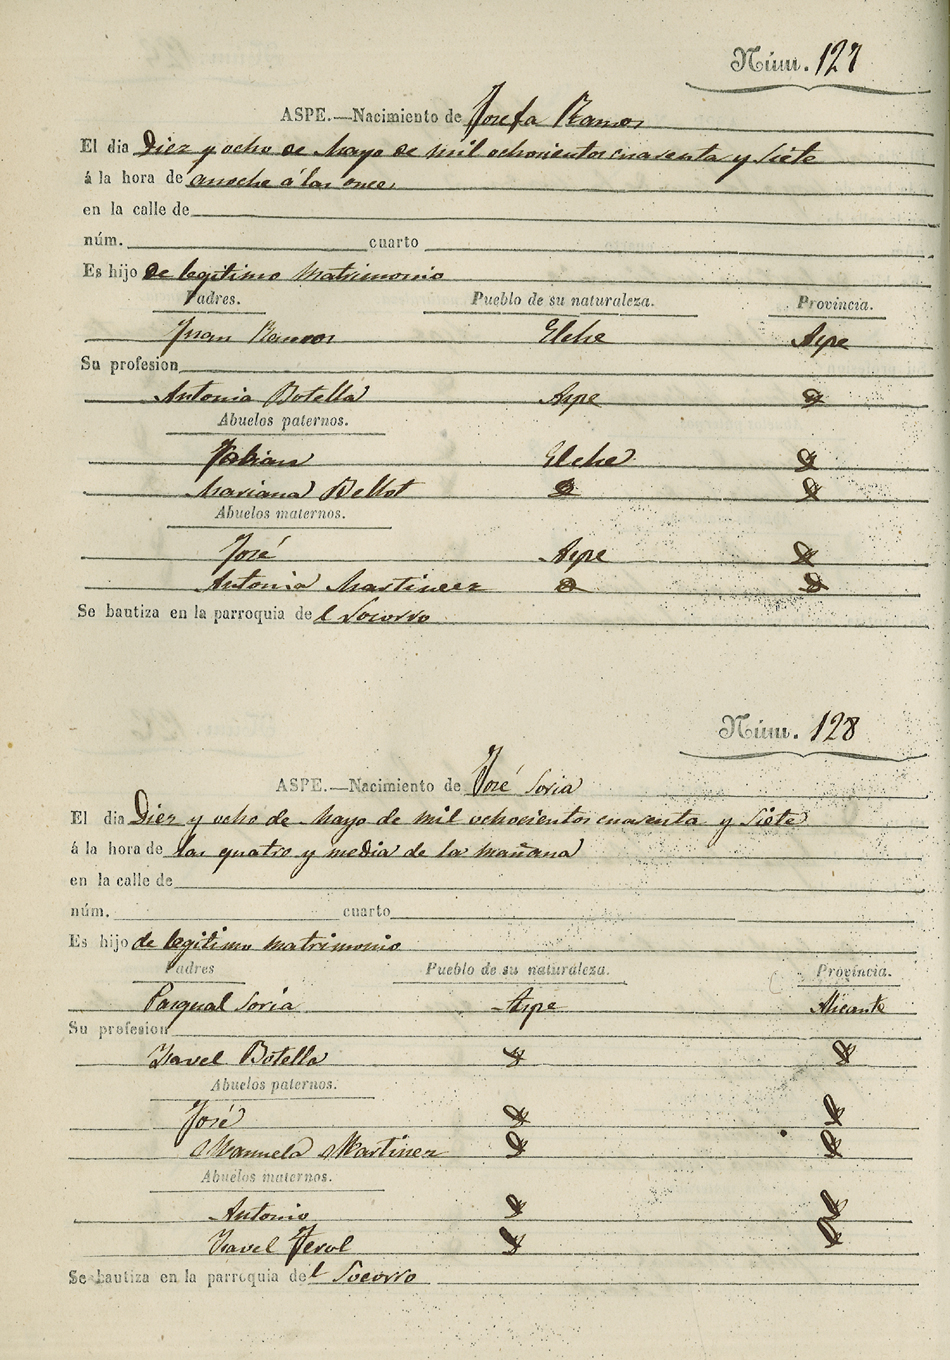 Núm. 127
ASPE.—Nacimiento de Josefa Ramos
El dia Diez y ocho de Mayo de mil ochocientos cuarenta y siete
á la hora de anoche á las once
en la calle de
núm. cuarto
Es hijo de legitimo Matrimonio
Padres. Pueblo de su naturaleza. Provincia.
Juan Ramos Elche Aspe
Su profesion
Antonia Botella Aspe
Abuelos paternos.
Fabian Elche
Mariana Bellot
Abuelos maternos.
José Aspe
Antonia Martineez
Se bautiza en la parroquia del Socorro
Núm. 128
ASPE.—Nacimiento de José Soria
El dia Diez y ocho de Mayo de mil ochocientos cuarenta y siete
á la hora de las quatro y media de la mañana
en la calle de
núm. cuarto
Es hijo de legitimo matrimonio
Padres Pueblo de su naturaleza. Provincia.
Pasqual Soria Aspe Alicante
Su profesion
Isavel Botella
Abuelos paternos.
José
Manuela Martinez
Abuelos maternos.
Antonio
Isavel Terol
Se bautiza en la parroquia del Socorro